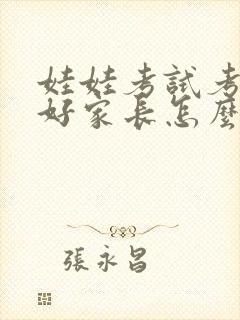 娃娃考試考
好家長怎麼
張永昌